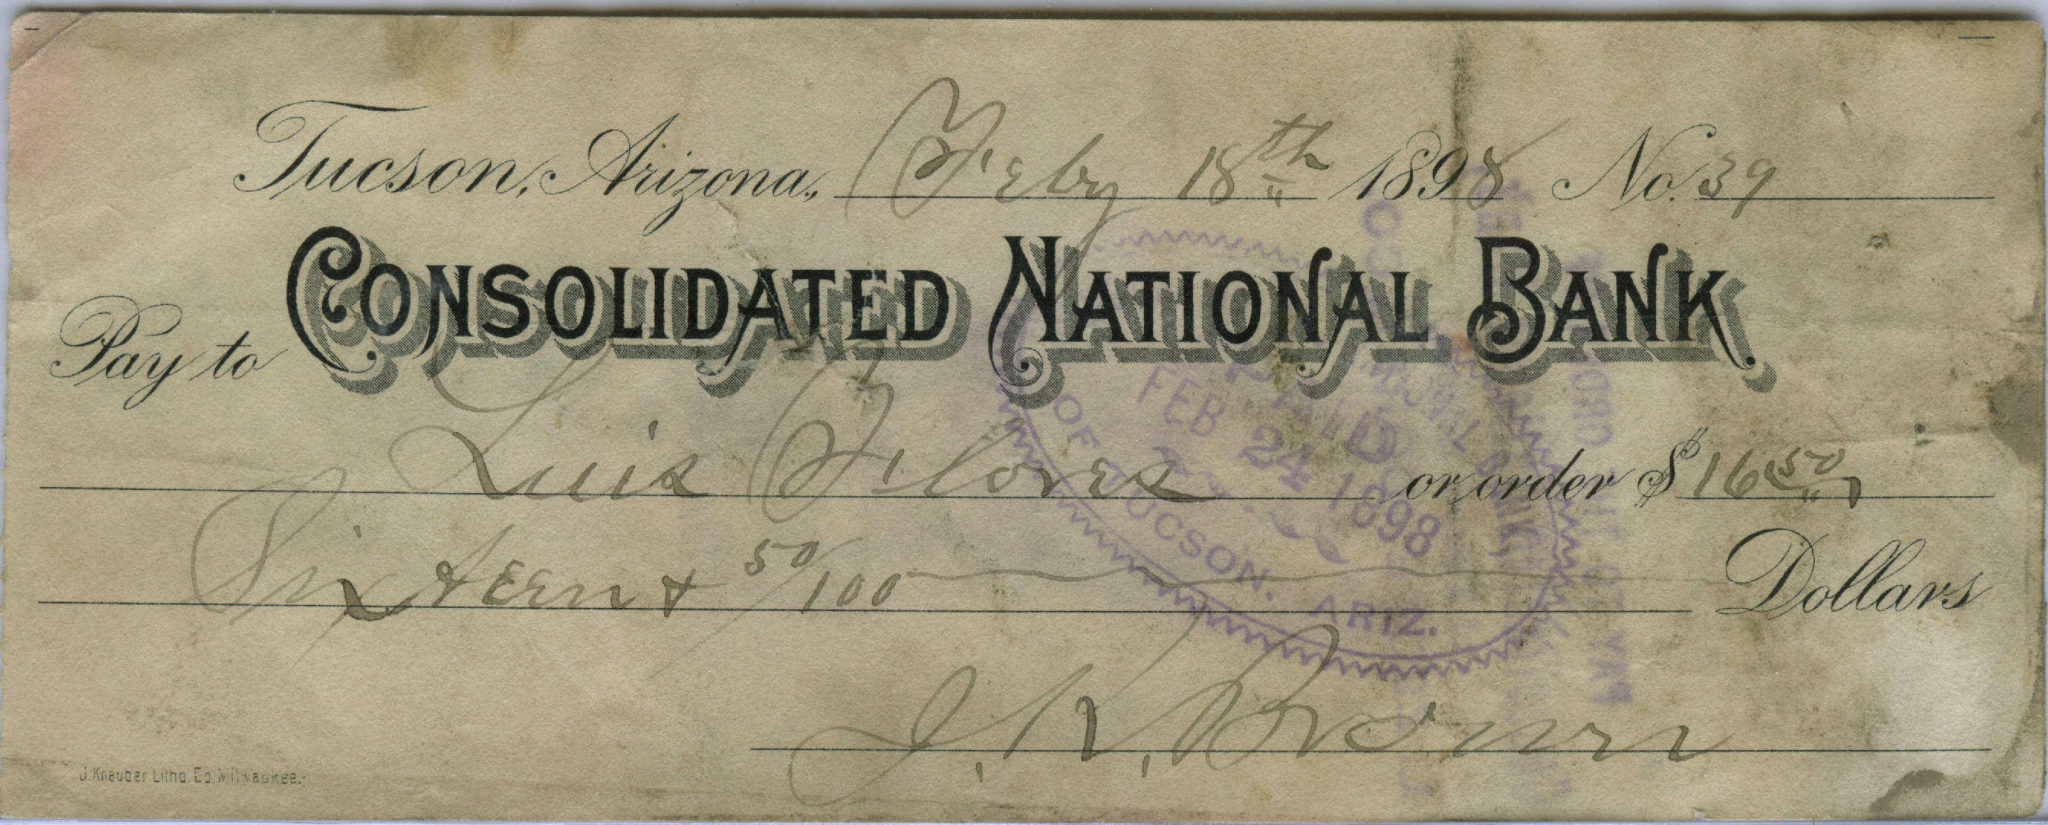 Tucson, Arizona, Feby 18th 1898 No. 39
CONSOLIDATED NATIONAL BANK
Pay to
Luis Flores or order $16 50
Sixteen & 50/100 Dollars
J. R. Brown
J. Knauber Litho. Co. Milwaukee.
PAID
FEB 24 1898
OF TUCSON, ARIZ.